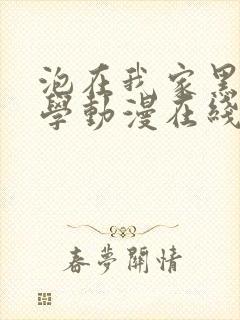 泡在我家黑
學動漫在綫
春夢關情